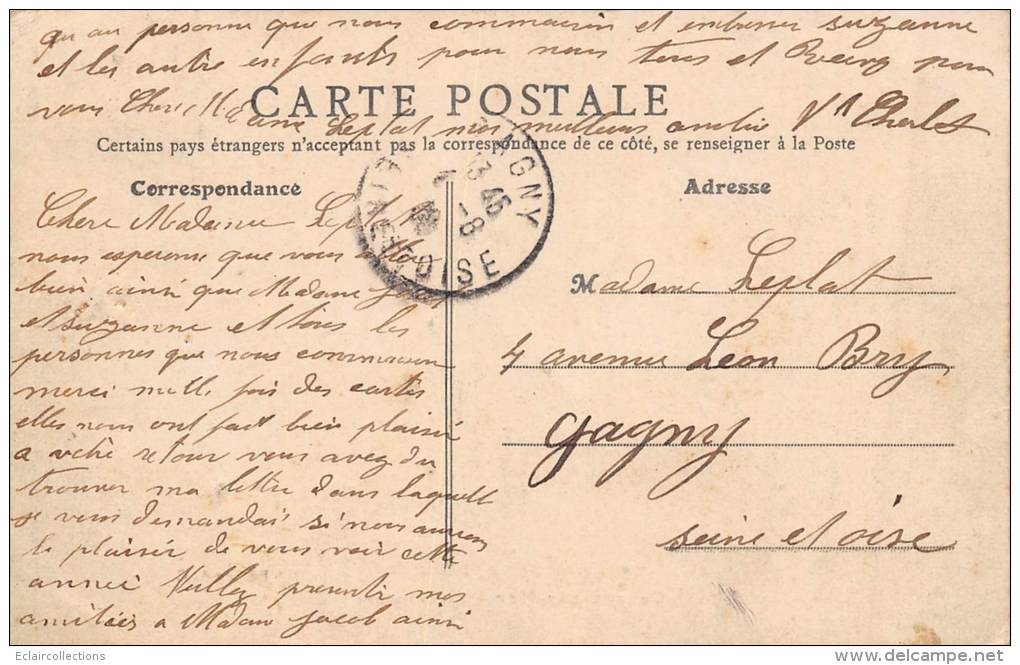 qu au personne que nous connaissons et embrasser suzanne
et les autre enfants pour nous tous et Recevez pour
vous Chere Madame Leplat nos meilleurs amitié Vve Charlet
CARTE POSTALE
Certains pays étrangers n'acceptant pas la correspondance de ce côté, se renseigner à la Poste
Correspondance
Chere Madame Leplat
nous esperons que vous allez
bien ainsi que Madame Jacob
et suzanne et tous les
personnes que nous connaisson
merci mille fois des cartes
elles nous ont fait bien plaisir
a votre retour vous avez du
trouver ma lettre dans laquelle
je vous demandai si nous aurons
le plaisir de vous voir cette
année Veullez presenté nos
amitiées a Madam Jacob ainsi
GAGNY
13 45
8
SEINE-ET-OISE
Adresse
Madame Leplat
4 avenue Leon Bry
Gagny
Seine et oise
Eclaircollections
© delcampe.net